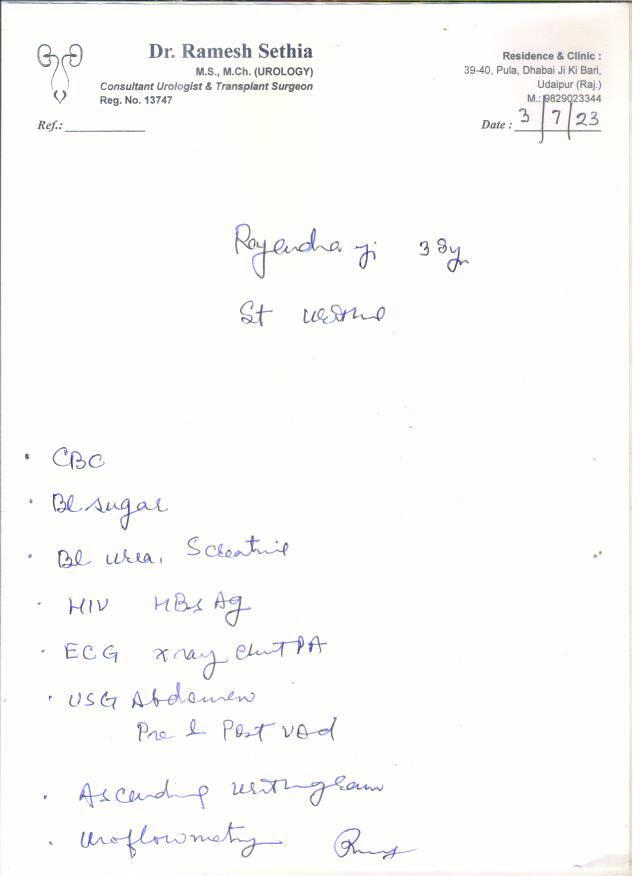 Dr. Ramesh Sethia
M.S., M.Ch. (UROLOGY)
Consultant Urologist & Transplant Surgeon
Reg. No. 13747
Ref.:
Residence & Clinic :
39-40, Pula, Dhabai Ji Ki Bari,
Udaipur (Raj.)
M.: 9829023344
Date : 3/7/23
Rajendra ji
St
CBC
Bl sugar
Bl urea, S creatine
HIV HBsAg
ECG x ray chest PA
USG Abdomen
Pre & Post void
Ascending urethrogram
Uroflowmetry